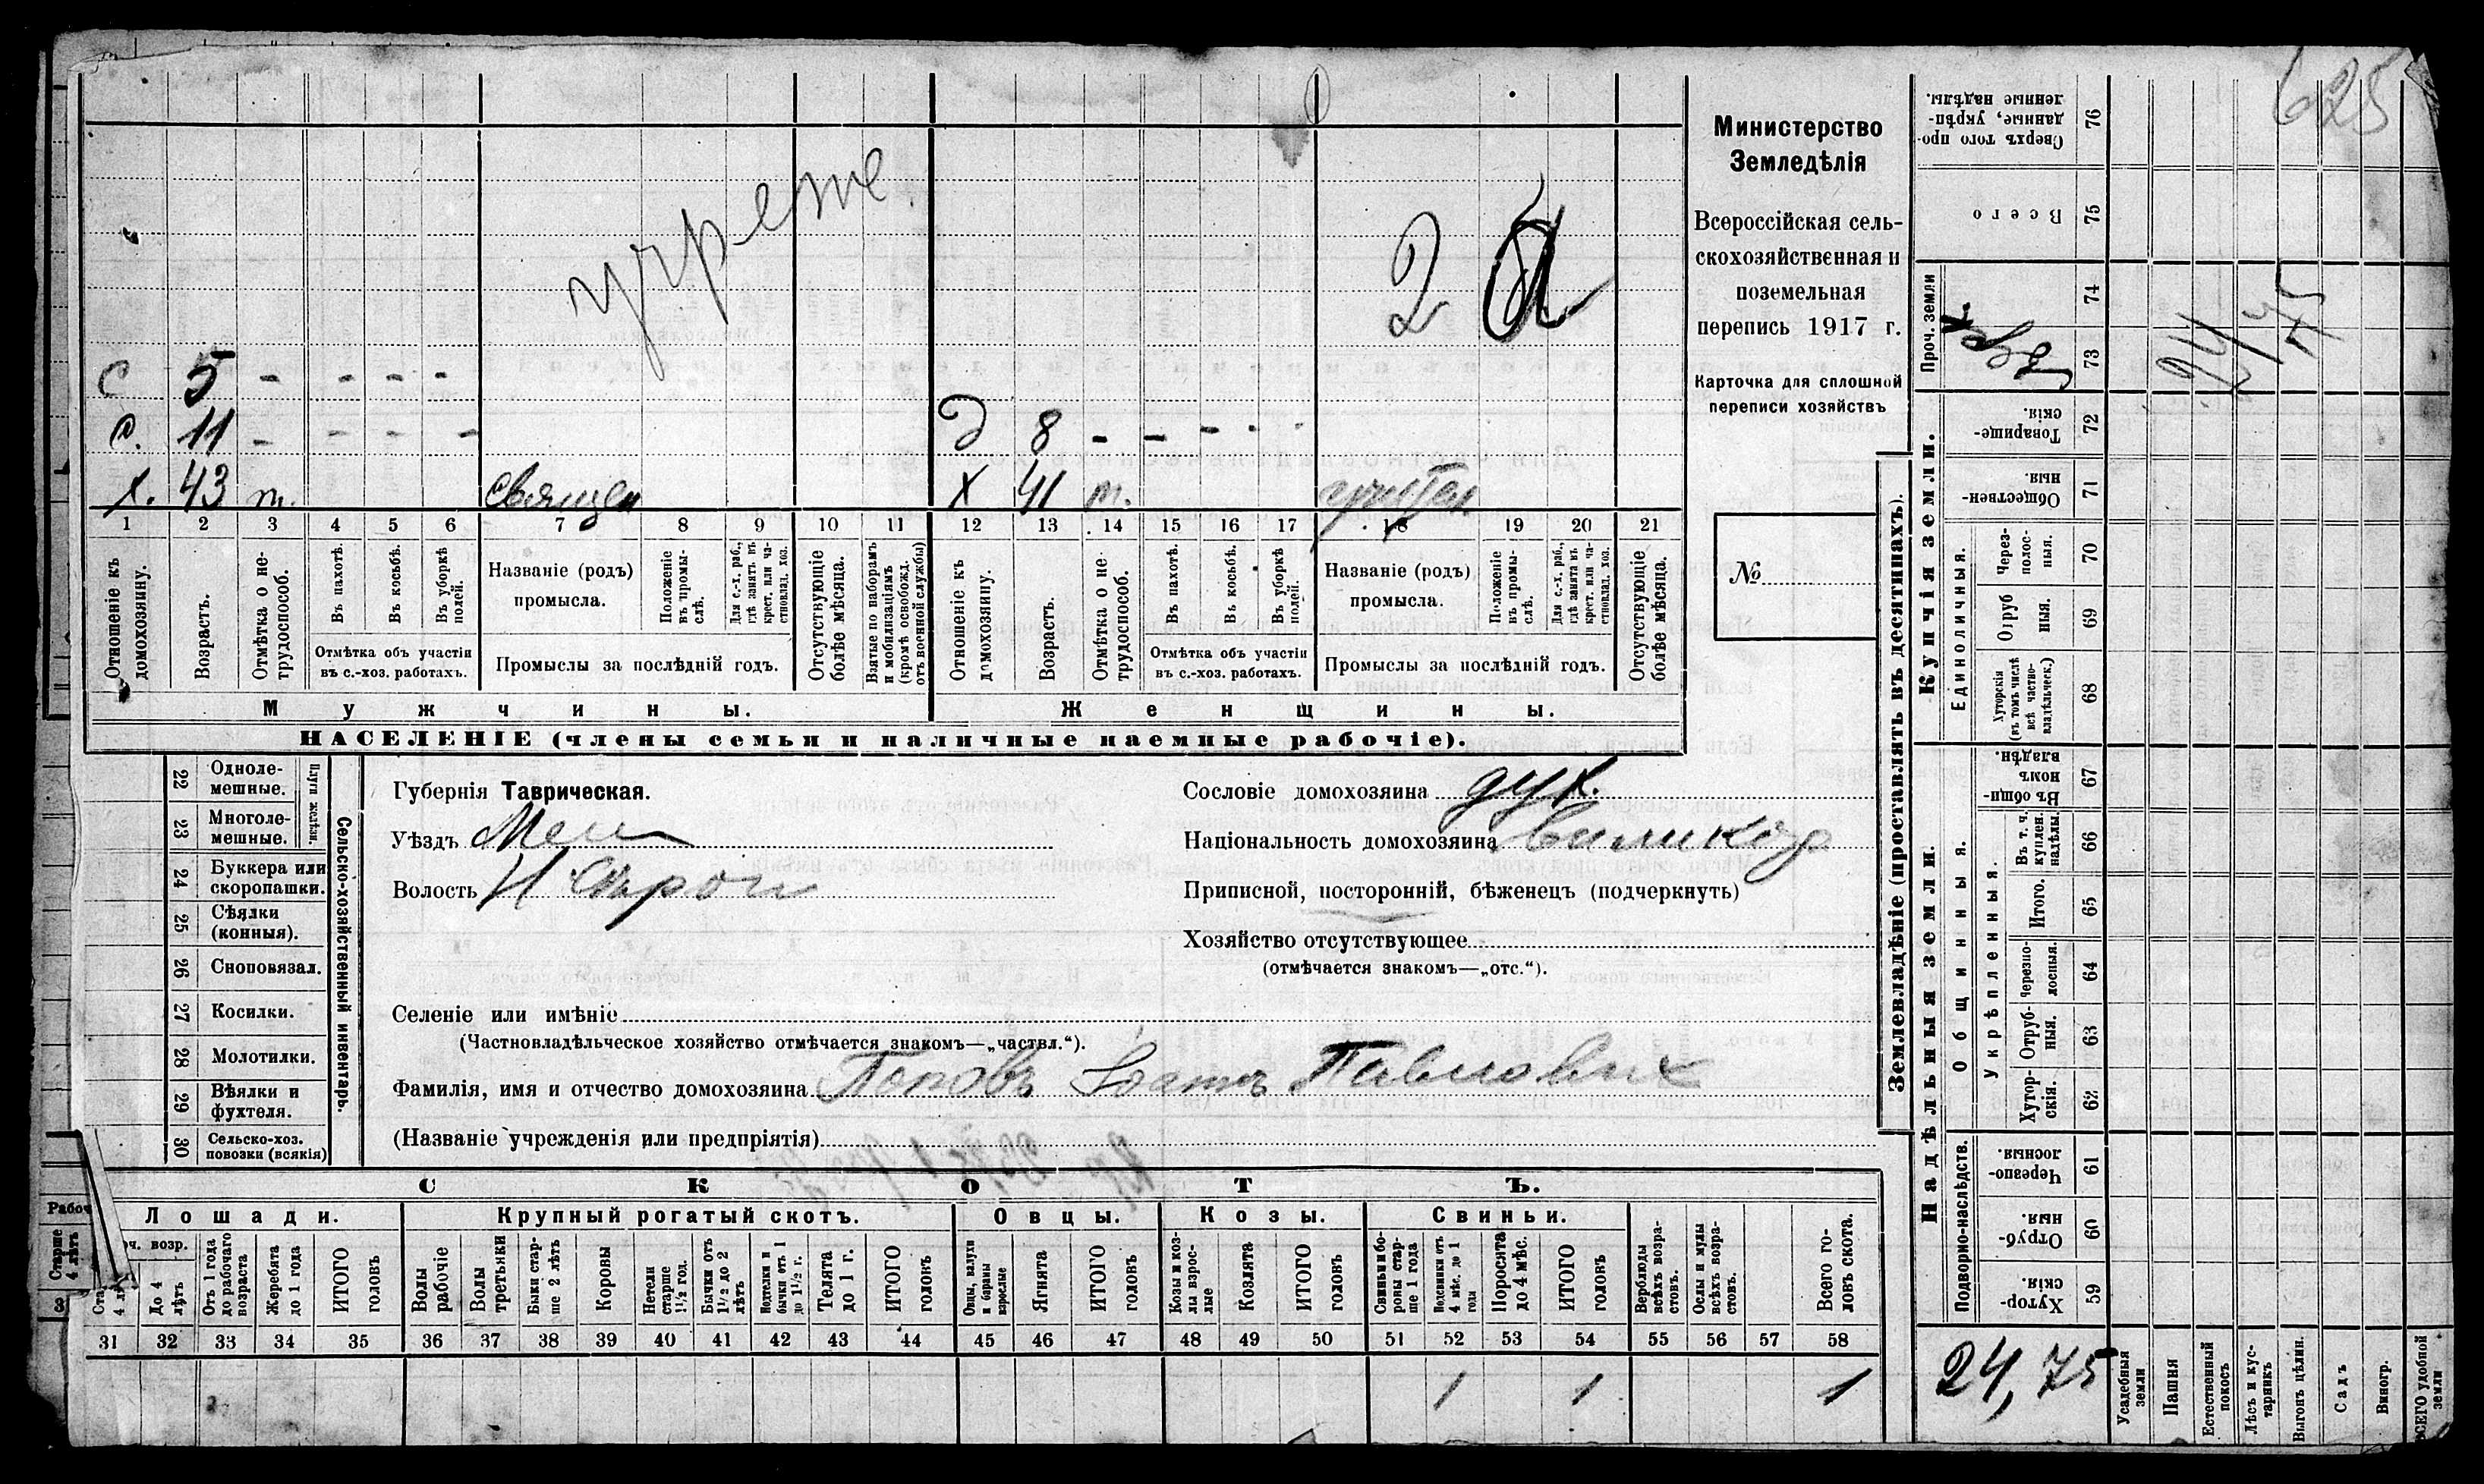 625
учреж
2 а
с 5 - - - -
с. 11 - - - - д 8 - - - - -
х. 43 т. священ х 41 т.
1 2 3 4 5 6 7 8 9 10 11 12 13 14 15 16 17 18 19 20 21
Отношеніе къ домохозяину.
Возрастъ.
Отмѣтка о не-трудоспособ.
Въ пахотѣ.
Въ косьбѣ.
Въ уборкѣ полей.
Отмѣтка объ участіи
въ с.-хоз. работахъ.
Названіе (родъ)
промысла.
Положеніе въ промы-слѣ.
Для с.-х. раб., гдѣ занятъ въ крест. или ча-стновлад. хоз.
Промыслы за послѣдній годъ.
Отсутствующіе болѣе мѣсяца.
Взятые по наборамъ и мобилизаціямъ (кромѣ освобожд. отъ военной службы)
Отношеніе къ домохозяину.
Возрастъ.
Отмѣтка о не трудоспособ.
Въ пахотѣ.
Въ косьбѣ.
Въ уборкѣ полей.
Отмѣтка объ участіи
въ с.-хоз. работахъ.
Названіе (родъ)
промысла.
Положеніе въ промы-слѣ.
Для с.-х. раб., гдѣ занята въ крест. или ча-стновлад. хоз.
Промыслы за послѣдній годъ.
Отсутствующіе болѣе мѣсяца.
Мужчины.
Женщины.
НАСЕЛЕНІЕ (члены семьи и наличные наемные рабочіе).
Министерство
Земледѣлія
Всероссійская сель-
скохозяйственная и
поземельная
перепись 1917 г.
Карточка для сплошной
переписи хозяйствъ
№
22 Одноле-мешные.
23 Многоле-мешные.
Плуги желѣзн.
24 Буккера или скоропашки.
25 Сѣялки (конныя).
26 Сноповязал.
27 Косилки.
28 Молотилки.
29 Вѣялки и фухтеля.
30 Сельско-хоз. повозки (всякія)
Сельско-хозяйственный инвентарь.
Губернія Таврическая.
Уѣздъ Мел
Волость
Сословіе домохозяина дух.
Національность домохозяина великор
Приписной, посторонній, бѣженецъ (подчеркнуть)
Хозяйство отсутствующее
(отмѣчается знакомъ—„отс.“).
Селеніе или имѣніе
(Частновладѣльческое хозяйство отмѣчается знакомъ—„частвл.“).
Фамилія, имя и отчество домохозяина Поповъ Іоаннъ Павловичъ
(Названіе учрежденія или предпріятія)
СКОТЪ.
Лошади.
Крупный рогатый скотъ.
Овцы.
Козы.
Свиньи.
Рабоч
Старше 4 лѣтъ
До 4 лѣтъ
Отъ 1 года до рабочаго возраста
Жеребята до 1 года
ИТОГО головъ
Волы рабочіе
Волы третьяки
Быки стар-ше 2 лѣтъ
Коровы
Нетели старше 1½ год.
Бычки отъ 1½ до 2 лѣтъ
Подтелки и бычки отъ 1 до 1½ г.
Телята до 1 г.
ИТОГО головъ
Овцы, валухи и бараны взрослые
Ягнята
ИТОГО головъ
Козы и коз-лы взрос-лые
Козлята
ИТОГО головъ
Свиньи и бо-ровы стар-ше 1 года
Подсвинки отъ 4 мѣс. до 1 года
Поросята до 4 мѣс.
ИТОГО головъ
Верблюды всѣхъ возра-стовъ.
Ослы и мулы всѣхъ возра-стовъ.
Всего го-ловъ скота.
31 32 33 34 35 36 37 38 39 40 41 42 43 44 45 46 47 48 49 50 51 52 53 54 55 56 57 58
1 1 1
Землевладѣніе (проставлять въ десятинахъ).
Купчія земли.
Надѣльныя земли.
76 Сверхъ того про-данные, укрѣп-ленные надѣлы.
75 Всего
Проч. земли
74
73
24 75
72 Товарище-скія.
71 Обществен-ныя
Единоличныя.
70 Через-полос-ныя.
69 Отруб ныя.
68 Хуторскія (въ томъ числѣ всѣ частно-владѣльческ.)
67 Въ общи-номъ владѣн.
Общинныя.
Укрѣпленныя.
66 Въ т. ч. куплен. надѣлы.
65 Итого.
64 Черезпо-лосныя.
63 Отруб-ныя.
62 Хутор-скія.
Подворно-наслѣдств.
61 Черезпо-лосныя.
60 Отруб-ныя
59 Хутор-скія
24,75
Усадебныя земли
Пашня
Естественный покосъ
Лѣсъ и кус-тарникъ
Выгонъ цѣлин.
Садъ
Виногр.
ВСЕГО удобной земли